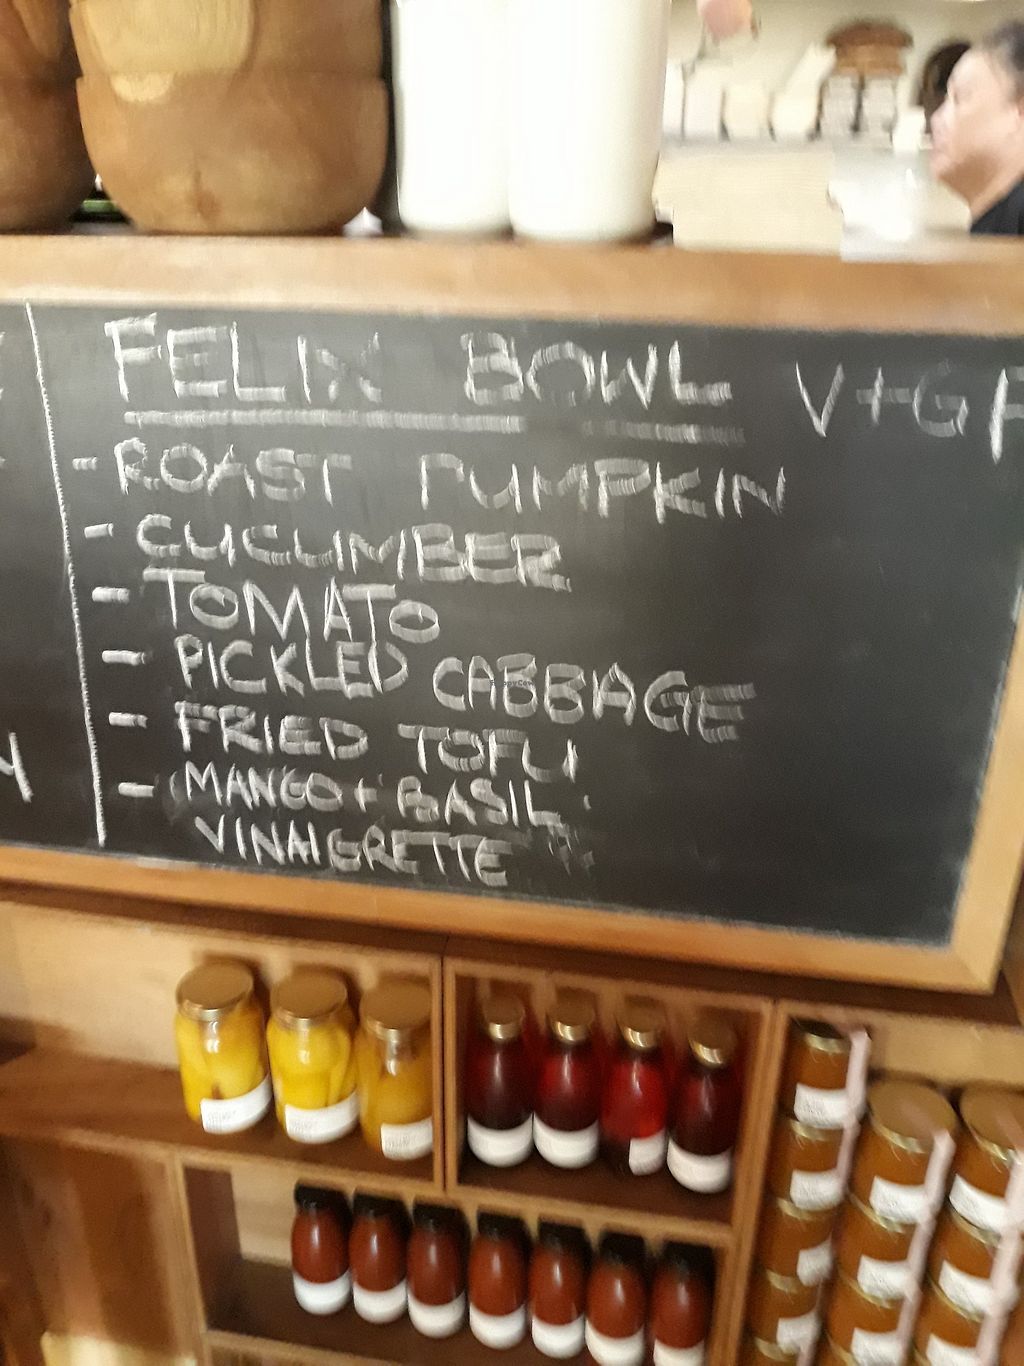 FELIX BOWL V+GF
- ROAST PUMPKIN
- CUCUMBER
- TOMATO
- PICKLED CABBAGE
- FRIED TOFU
- MANGO + BASIL
VINAIGRETTE
Y